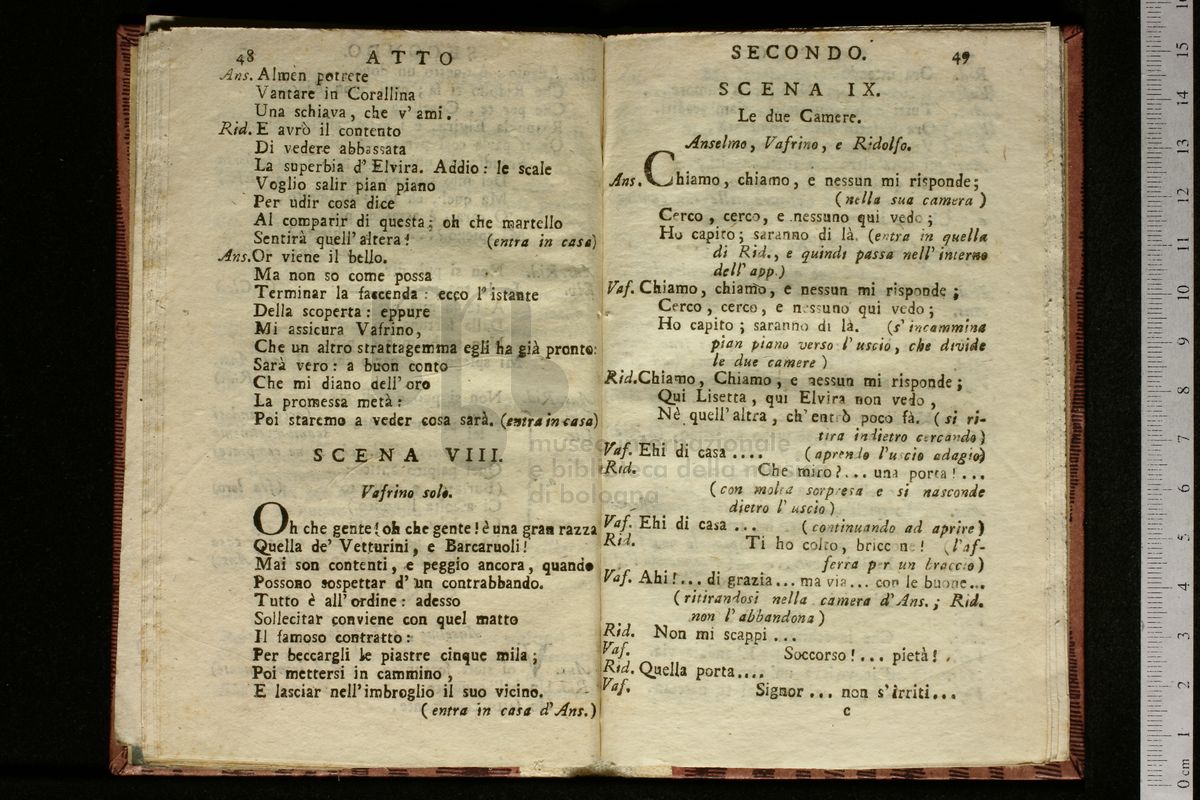 48 ATTO
Ans. Almen potrete
Vantare in Corallina
Una schiava, che v'ami.
Rid. E avrò il contento
Di vedere abbassata
La superbia d'Elvira. Addio: le scale
Voglio salir pian piano
Per udir cosa dice
Al comparir di questa; oh che martello
Sentirà quell'altera! (entra in casa)
Ans. Or viene il bello.
Ma non so come possa
Terminar la faccenda: ecco l'istante
Della scoperta: eppure
Mi assicura Vafrino,
Che un altro strattagemma egli ha già pronto:
Sarà vero: a buon conto
Che mi diano dell'oro
La promessa metà:
Poi staremo a veder cosa sarà. (entra in casa)
SCENA VIII.
Vafrino solo.
Oh che gente! oh che gente! è una gran razza
Quella de' Vetturini, e Barcaruoli!
Mai son contenti, e peggio ancora, quando
Possono sospettar d'un contrabbando.
Tutto è all'ordine: adesso
Sollecitar conviene con quel matto
Il famoso contratto:
Per beccargli le piastre cinque mila;
Poi mettersi in cammino,
E lasciar nell'imbroglio il suo vicino.
(entra in casa d'Ans.)
SECONDO. 49
SCENA IX.
Le due Camere.
Anselmo, Vafrino, e Ridolfo.
Ans. Chiamo, chiamo, e nessun mi risponde;
(nella sua camera)
Cerco, cerco, e nessuno qui vedo;
Ho capito; saranno di là. (entra in quella
di Rid., e quindi passa nell'interno
dell'app.)
Vaf. Chiamo, chiamo, e nessun mi risponde;
Cerco, cerco, e nessuno qui vedo;
Ho capito; saranno di là. (s'incammina
pian piano verso l'uscio, che divide
le due camere)
Rid. Chiamo, Chiamo, e nessun mi risponde;
Qui Lisetta, qui Elvira non vedo,
Nè quell'altra, ch'entrò poco fà. (si ri-
tira indietro cercando)
Vaf. Ehi di casa .... (aprendo l'uscio adagio)
Rid. Che miro?... una porta!...
(con molta sorpresa e si nasconde
dietro l'uscio)
Vaf. Ehi di casa ... (continuando ad aprire)
Rid. Ti ho colto, briccone! (l'af-
ferra per un braccio)
Vaf. Ahi!... di grazia... ma via... con le buone...
(ritirandosi nella camera d'Ans.; Rid.
non l'abbandona)
Rid. Non mi scappi ...
Vaf. Soccorso!... pietà!
Rid. Quella porta....
Vaf. Signor ... non s'irriti...
c
museo internazionale
e biblioteca della musica
di bologna
0 cm 1 2 3 4 5 6 7 8 9 10 11 12 13 14 15